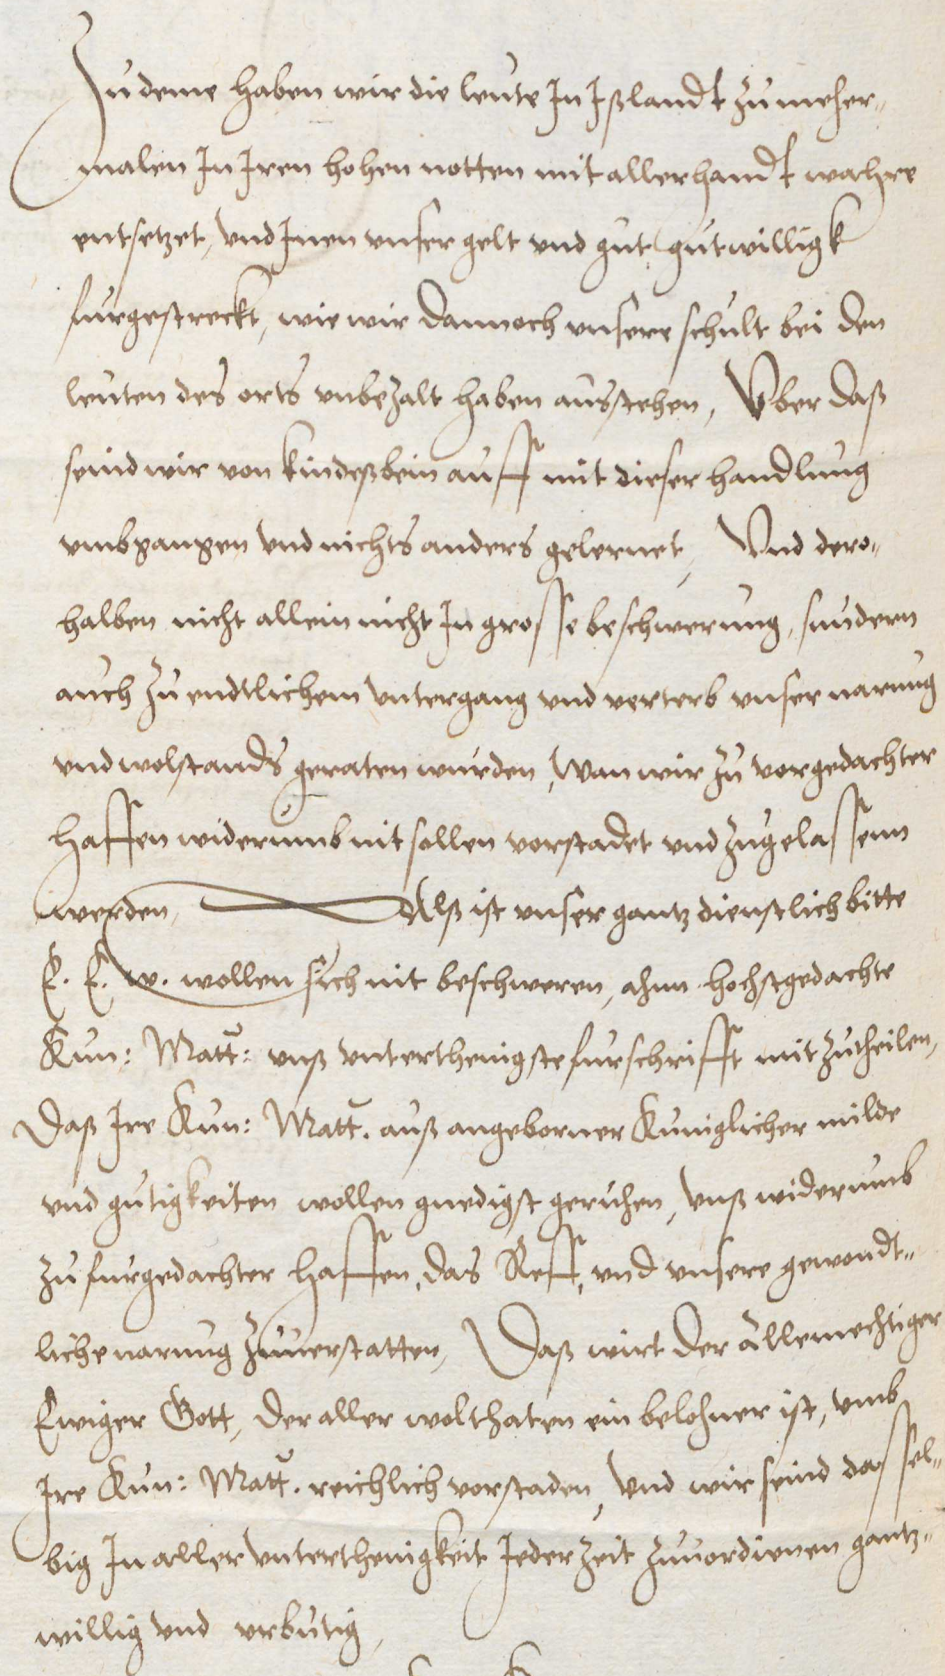 Zu deme haben wir die leute In Ißlandt zu meher-
malen In Iren hohen notten mit allerhandt wahre
entsetzet, vnd Inen vnser gelt vnd gut gutwilligk
furgestreckt, wie wir dannoch vnsere schult bei den
leuten des orts vnbezalt haben ausstehen, Vber daß
seind wir von kindeßbein auff mit dieser handlung
vmbgangen vnd nichts anders gelernet, Vnd dero-
halben nicht allein nicht In grosse beschwerung, sundern
auch zu endtlichem vntergang vnd verterb vnser narung
vnd wolstands geraten wurden, Wan wir zu vorgedachter
Haffen widerumb nit sollen vorstadet vnd zugelassenn
werden, Alß ist vnser gantz dienstlich bitte
E. E. w. wollen sich nit beschweren, ahnn hochstgedachte
Kun: Matt: vnß vnterthenigste furschrifft mit zutheilen,
Daß Ire Kun: Matt. auß angeborner Kuniglicher milde
vnd gutigkeiten wollen gnedigst geruhen, vnß widerumb
zu furgedachter Haffen, das Reff, vnd vnsere gewondt-
liche narung zuuerstatten, Daß wirt der Allemechtiger
Ewiger Gott, der aller wolthaten ein belohner ist, vmb
Ire Kun: Matt. reichlich vorstaden, Vnd wir seind dassel-
big In aller vnterthenigkeit Jeder Zeit zuuordienen gantz-
willig vnd vrbutig,